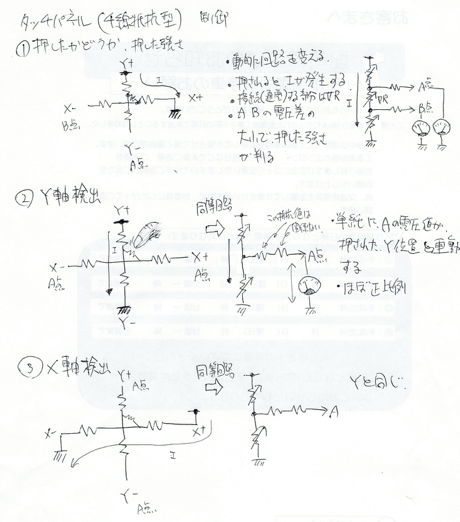 タッチパネル(4線抵抗型) 制御
① 押したかどうか、押した強さ
Y+
I
X-
B点
X+
Y-
A点
・動的に回路を変える。
・押されると I が発生する
・接点(通電)する部分はVR
・A B の電圧差の
大小で押した強さ
が判る
I
VR
A点
B点
② Y軸検出
Y+
I
X-
A点
X+
A点
Y-
同等回路
この抵抗値は
A点
・単純に、Aの電圧値が、
押された Y位置と連動
する
・ほぼ正比例
③ X軸検出
Y+
A点
X-
X+
I
Y-
A点
同等回路
A
Yと同じ.